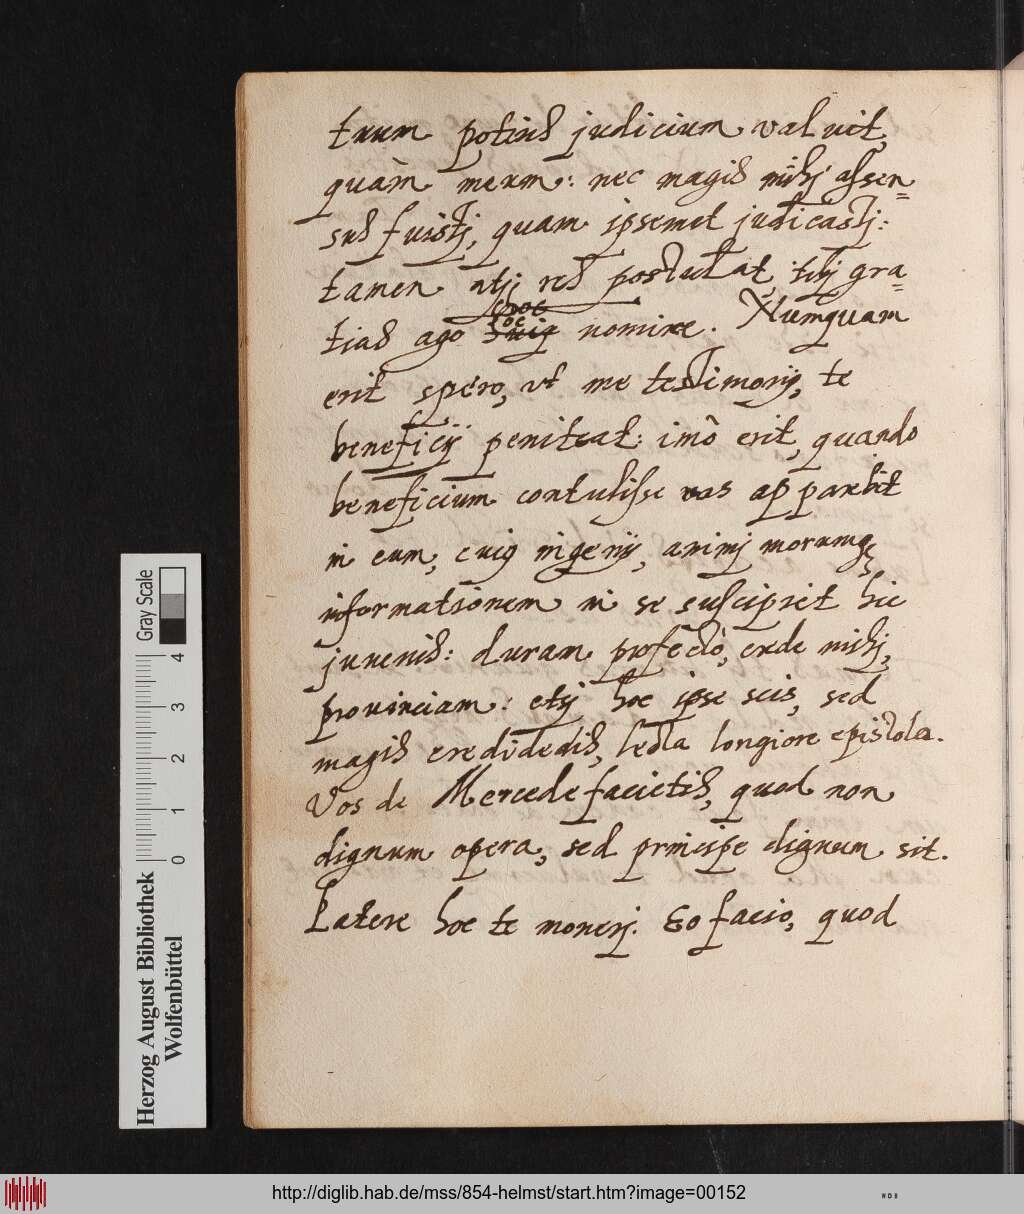 tuum potius judicium valuit,
quàm meum: nec magis mihj assen=
sus fuistj, quam ipsemet judicastj:
tamen utj res postulat, tibj gra=
tias ago hoc nomine. Numquam
erit spero, vt me testimonij, te
beneficij peniteat: imò erit, quando
beneficium contulisse vos apparebit
in eum, cuiq ingenij, animj morumq
informationem in se suscipiet hic
juvenis: duram profectò, crede mihj,
provinciam: etsj hoc ipse scis, sed
magis credideris, lecta longiore epistola.
Vos de Mercede facietis, quod non
dignum opera, sed principe dignum sit.
Patere hoc te monerj. Eo facio, quod
Herzog August Bibliothek
Wolfenbüttel
0 1 2 3 4
Gray Scale
http://diglib.hab.de/mss/854-helmst/start.htm?image=00152